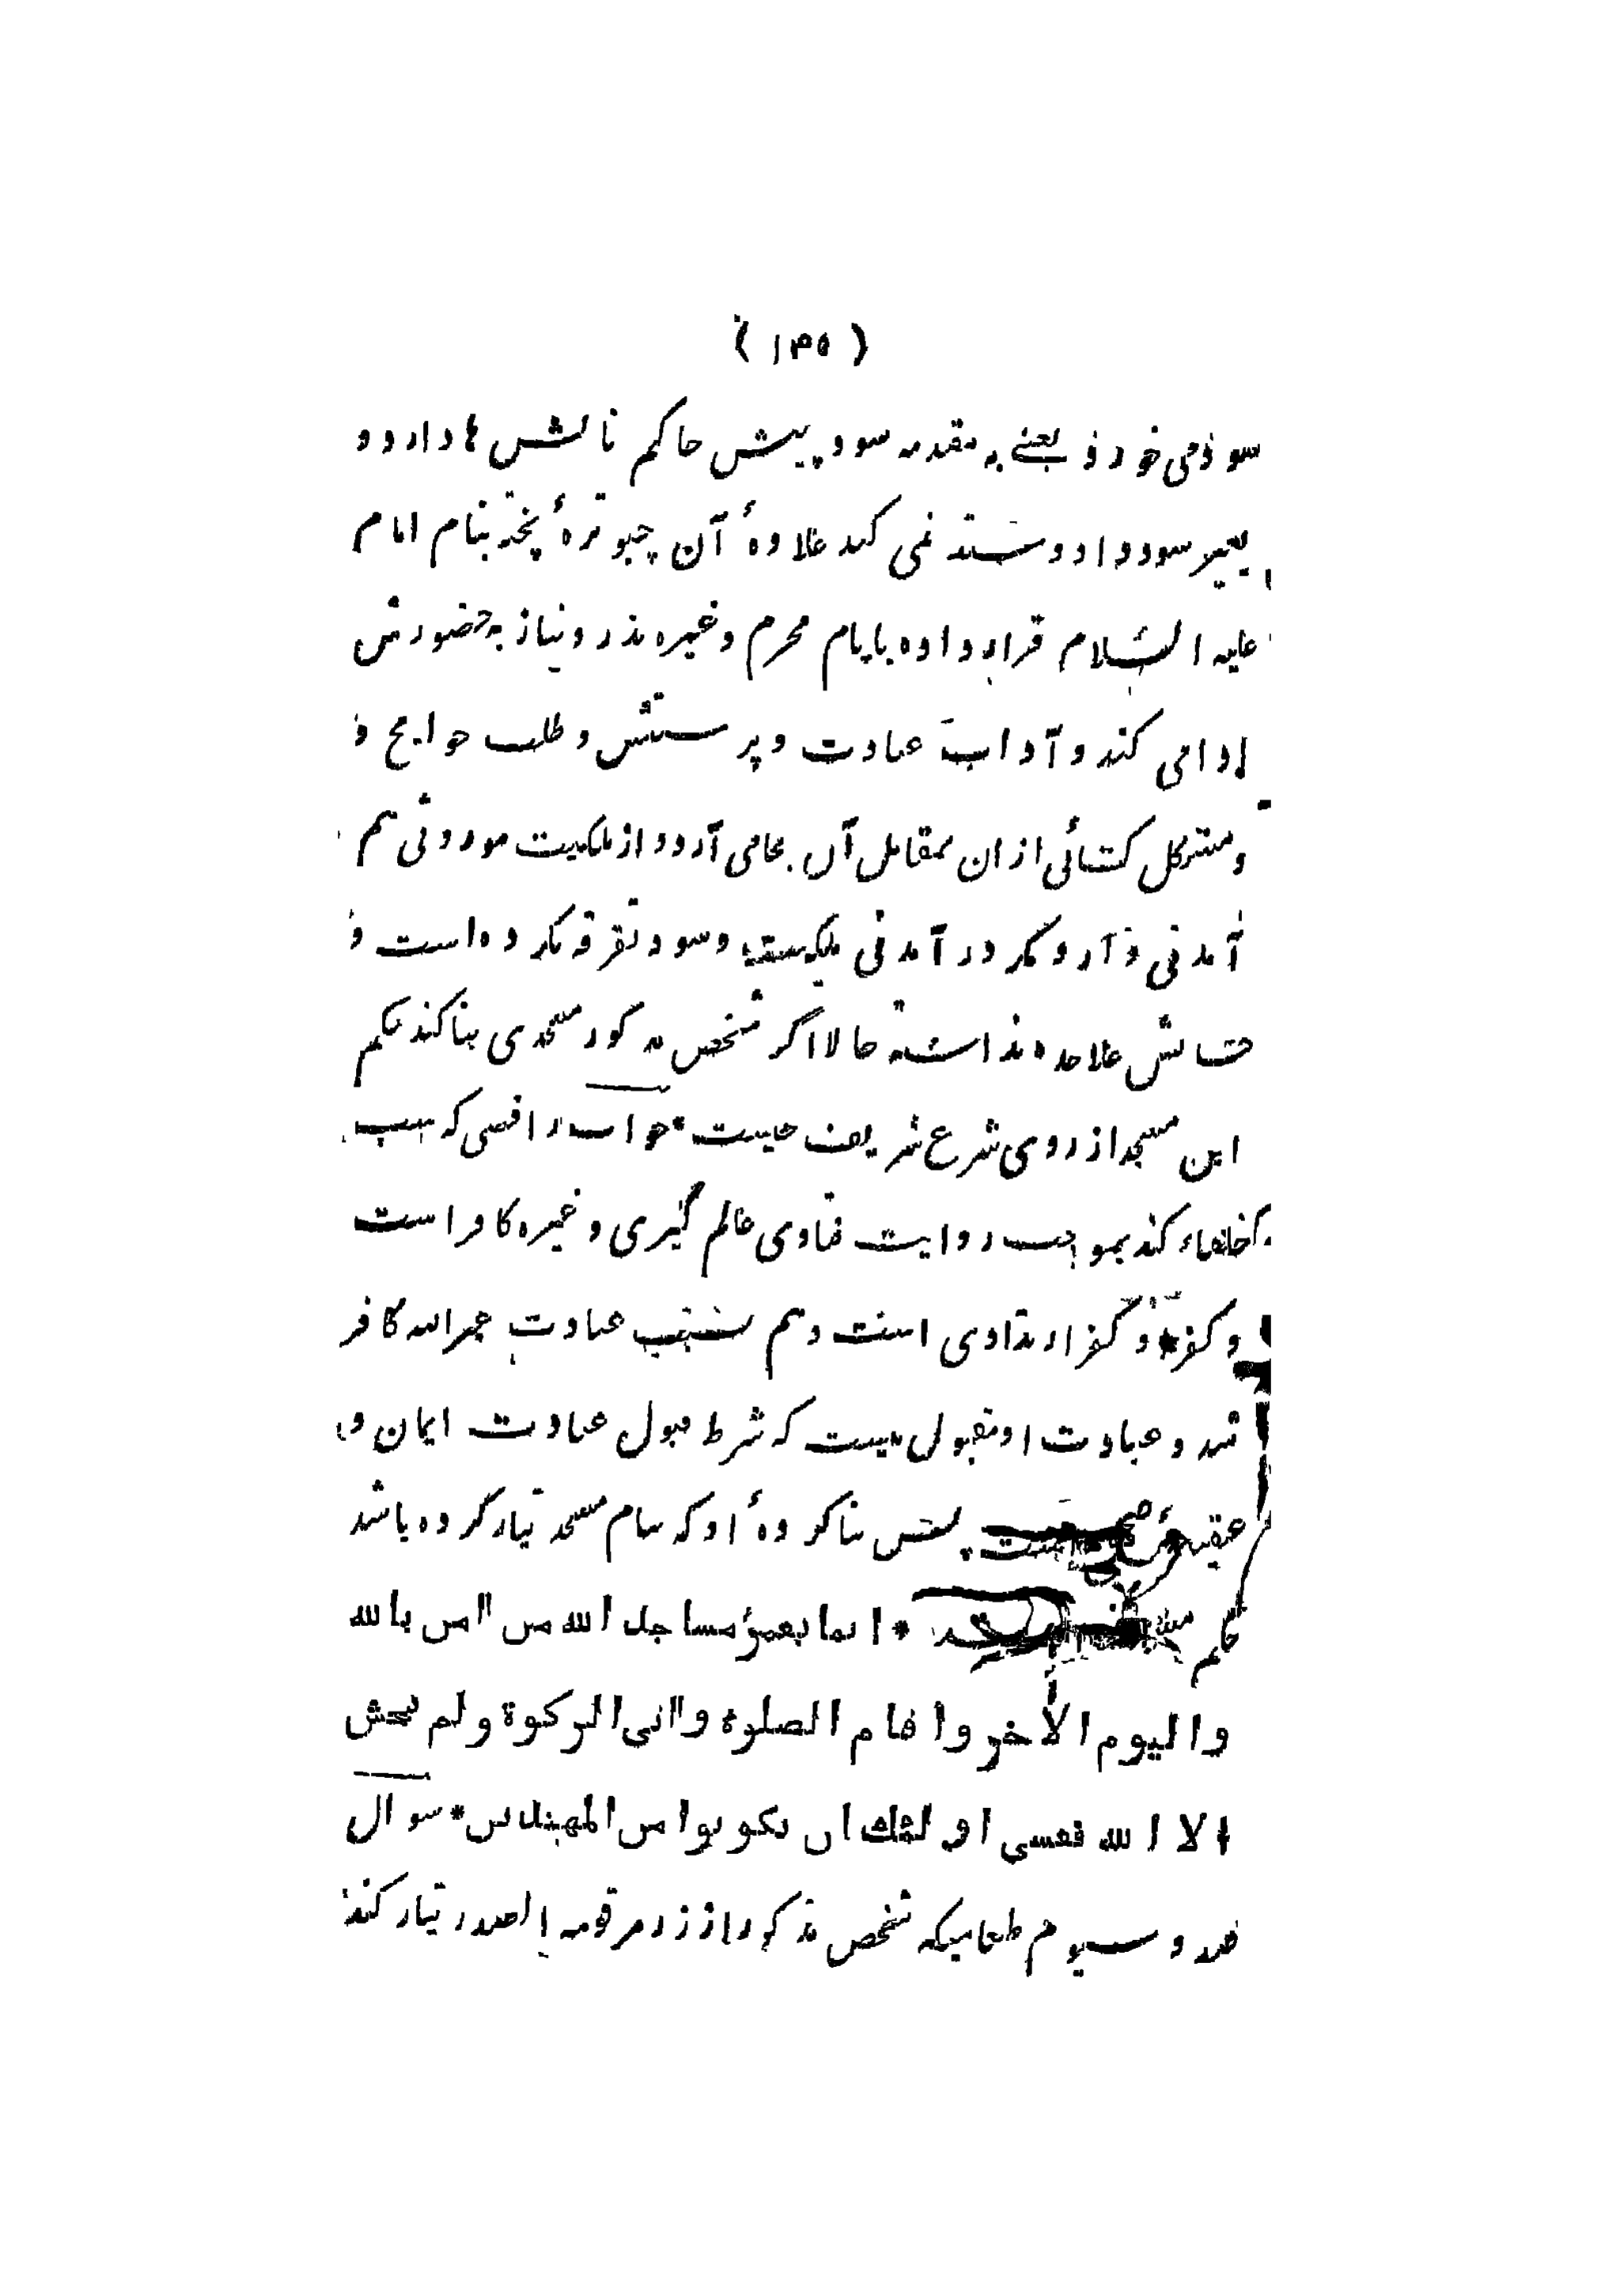 ( ۱۳۵ )
سود می خورد یعنے به مقدمه سود پیش حاکم نالشس ها دارد و
بغیر سود داد وستد نمی کند علاوهٔ آن چبوترهٔ پخته بنام امام
علیه السلام قرار داده بایام محرم وغیره نذر و نیاز به حضورش
ادا می کند و آداب عبادت و پرستش و طلب حوایج و
و مشکل کشائی ازان بمقابل آن بجا می آرد و از ملکیت موروثی هم
آمدنی دارد مگر در آمدنی ملکیت و سود تفرقه نکرده است و
حسابش علاحده نداشته حالا اگر شخص مذکور مسجدی بنا کند حکم
این مسجد از روی شرع شریف چیست * جواب رافضی که سب
خلفاء کند بموجب روایت فتاوی عالم گیری وغیره کافر است
و کفر او کفر ارتدادی است و هم بسبب عبادت غیر الله کافر
شد و عبادت او مقبول نیست که شرط قبول عبادت ایمان و
عقیدهٔ صحیح است پس بنا کردهٔ او که بنام مسجد تیار کرده باشد
حکم مسجد * انما یعمر مساجد الله من اٰمن بالله
والیوم الاٰخر واقام الصلوة واٰتی الزکوة ولم یخش
الا الله فعسی اولئك ان یکونوا من المهتدین * سوال
صد و سیوم طعامیکه شخص مذکور از زر مرقومه الصدر تیار کند